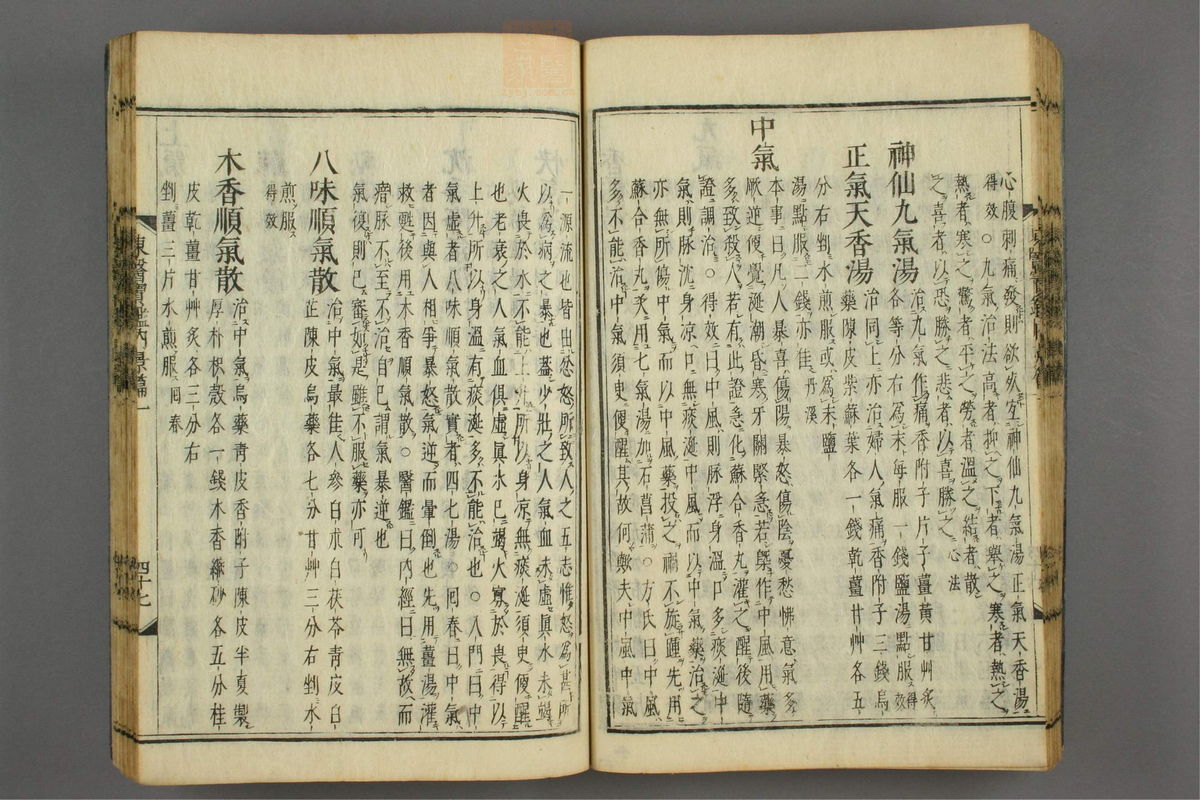 心腹刺痛發則欲死宜神仙九氣湯正氣天香湯
得效○九氣治法高者抑之下者擧之寒者熱之
熱者寒之驚者平之勞者溫之結者散
之喜者以恐勝之悲者以喜勝之心法
神仙九氣湯
治九氣作痛香附子片子薑黃甘艸炙
各等分右爲末每服一錢鹽湯點服得效
正氣天香湯
治同上亦治婦人氣痛香附子三錢烏
藥陳皮紫蘇葉各一錢乾薑甘艸各五
分右剉水煎服或爲末鹽
湯點服二錢亦佳丹溪
中氣
本事曰凡人暴喜傷陽暴怒傷陰憂愁怫意氣多
厥逆便覺涎潮昏塞牙關緊急若槩作中風用藥
多致殺人若有此證急化蘇合香丸灌之醒後隨
證調治○得效曰中風則脉浮身溫口多痰涎中
氣則脉沈身凉口無痰涎中風而以中氣藥治之
亦無所傷中氣而以中風藥投之禍不旋踵先用
蘇合香丸灸用七氣湯加石菖蒲○方氏曰中風
多不能治中氣須臾便醒其故何歟夫中風中氣
一源流也皆由忿怒所致人之五志惟怒爲甚所
以爲病之暴也蓋少壯之人氣血未虛眞水未竭
火畏於水不能上升所以身凉無痰涎須臾便醒
也老衰之人氣血俱虛眞水已竭火寡於畏得以
上升所以身溫有痰涎多不能治也○入門曰中
氣虛者八味順氣散實者四七湯○回春曰中氣
者因與人相爭暴怒氣逆而暈倒也先用薑湯灌
救甦後用木香順氣散○醫鑑曰內經曰無故而
瘖脉不至不治自已謂氣暴逆也
氣復則已審如是雖不服藥亦可
八味順氣散
治中氣最佳人參白朮白茯苓靑皮白
芷陳皮烏藥各七分甘艸三分右剉水
煎服
得效
木香順氣散
治中氣烏藥靑皮香附子陳皮半夏製
厚朴枳殼各一錢木香縮砂各五分桂
皮乾薑甘艸炙各三分右
剉薑三片水煎服回春
東醫寶鑑內景篇一
四十七